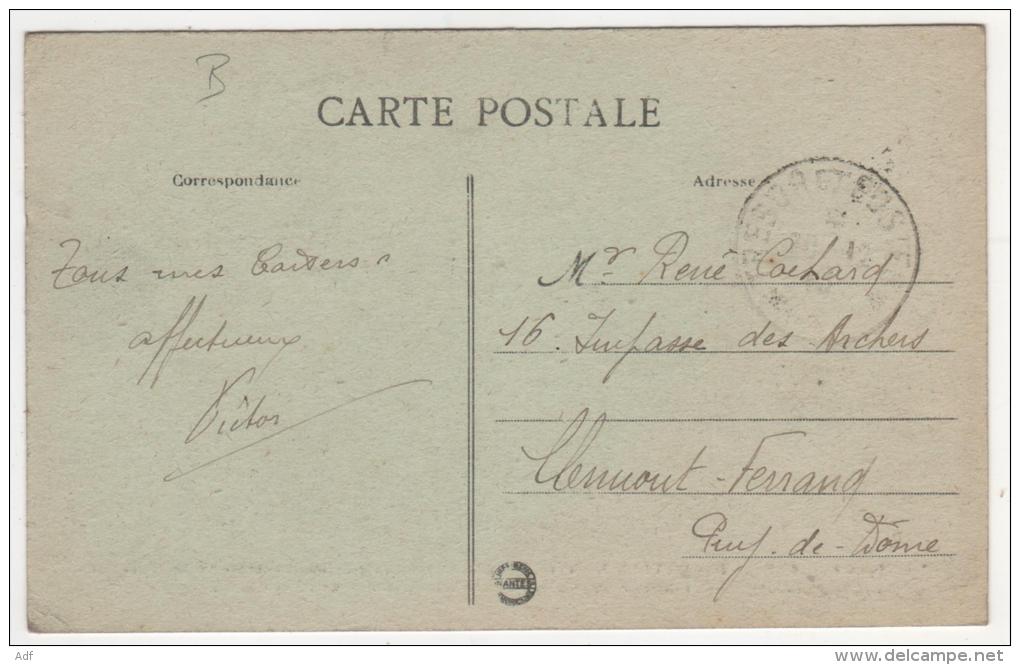 B
CARTE POSTALE
Correspondance
Adresse
TRESOR ET POSTES
Tous mes baisers
affectueux
Victor
Mr René Cochard
16. Impasse des Archers
Clermont-Ferrand
Puy-de-Dôme
ANTES
Adf
www.delcampe.net